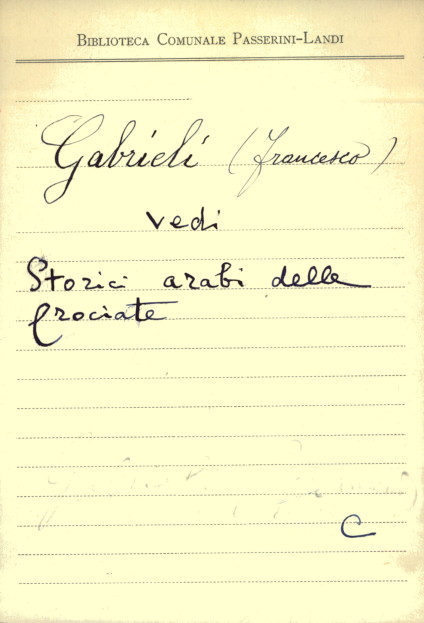 BIBLIOTECA COMUNALE PASSERINI-LANDI
Gabrieli (Francesco)
vedi
Storici arabi delle
Crociate
C